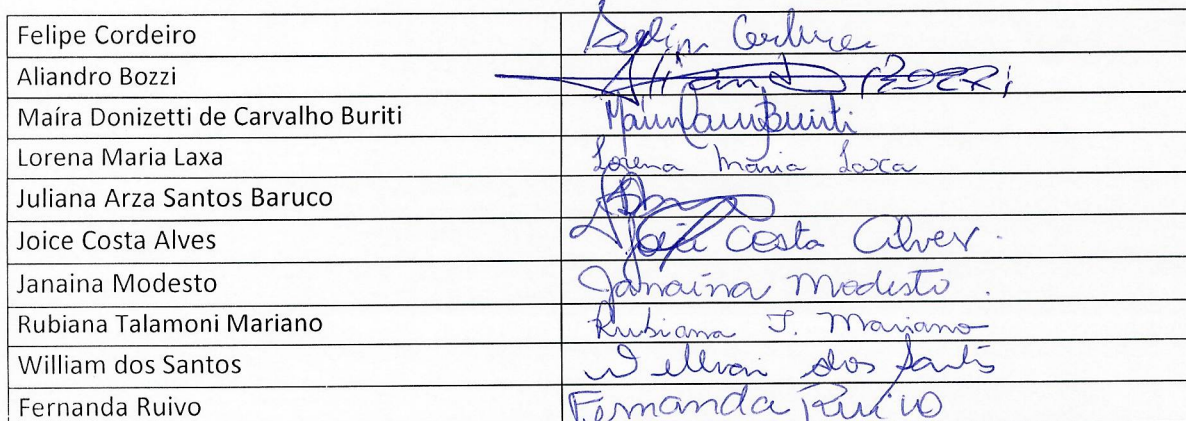 Felipe Cordeiro
Aliandro Bozzi Aliandro Bozzi
Maíra Donizetti de Carvalho Buriti Buriti
Lorena Maria Laxa Lorena Maria Laxa
Juliana Arza Santos Baruco
Joice Costa Alves Joice Costa Alves.
Janaina Modesto Janaína Modesto.
Rubiana Talamoni Mariano Rubiana T. Mariano
William dos Santos dos Santos
Fernanda Ruivo Fernanda Ruivo